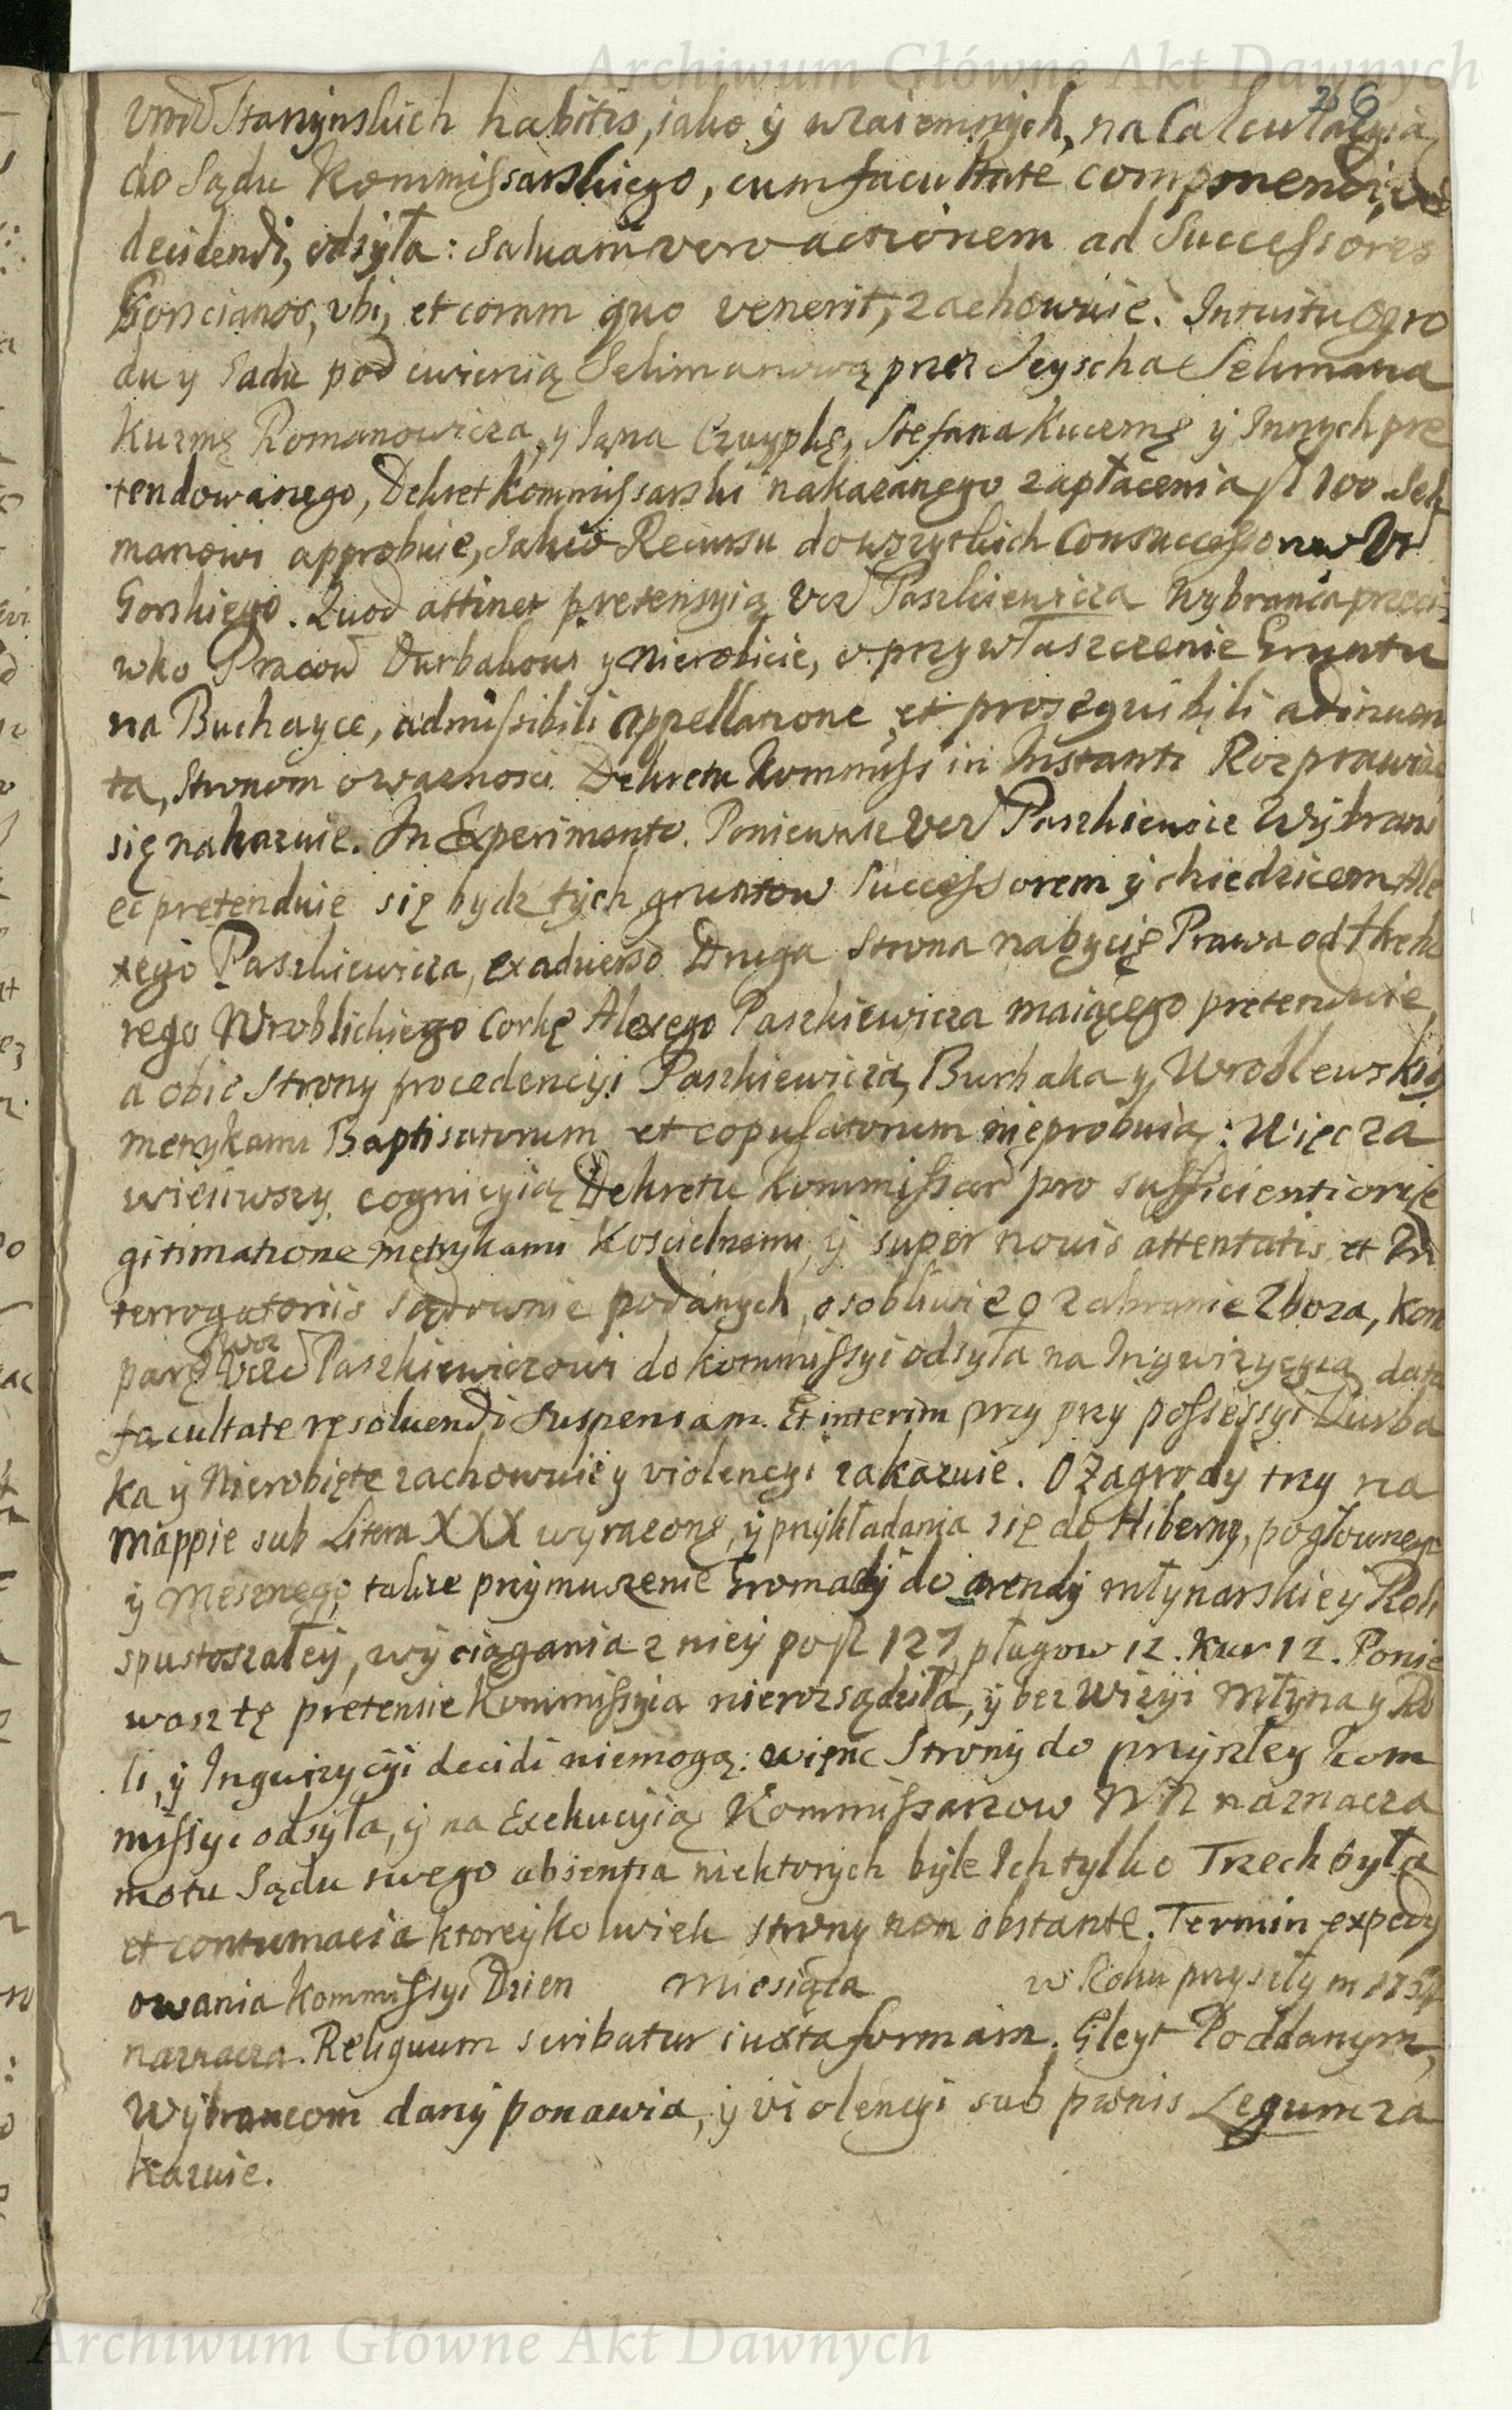 Archiwum Główne Akt Dawnych
26
Stanÿnskich habitis, iako ÿ wzaiemnÿch, na Calculacyią
do Sądu Kommissarskiego, cum facultate componendi,
decidendi, odsÿła: Saluam vero actionem ad Successores
Gorscianos, vbi, et coram quo venerit, zachowuie. Intuitu ogro
du y Sadu pod cwiercią Selimanową przez Seyscha Selimana
Kuzmę Romanowicza, y Jana Czuypkę, Stefana Kucemę ÿ Innÿch pre
tendowanego, Dekret kommissarski nakazanego zapłacenia fl 100 Seli
manowi approbuie, saluo Recursu do wszystkich Consuccessorow Vr
Gorskiego. Quod attinet pretensyią Vcz Paszkiewicza Wybranca przeci
wko Pracow Durbakowi y Nierobicie, o przywłaszczenie Gruntu
na Buchayce, admissibili appellatione et prosequibili adinuen
ta, Stronom o wazności Dekretu Kommiss in Instanti Rozprawić
się nakazuie. In Experimento. Poniewasz Vcz Paszkiewicz Wÿbrani
ec pretenduie się bydz tÿch gruntow Successorem ÿ dziedzicem Ale
xego Paszkiewicza, ex aduerso Druga Strona nabycię Prawa od
rego Wroblickiego Corkę Alexego Paszkiewicza maiącego pretenduie,
a obie Strony procedencyi Paszkiewicza, Burbaka y Wroblewskiey
metrykami Baptisatorum et copulatorum nieprobuią: Więc za
wiesiwszy cognicyią Dekretu Kommissar pro sufficientiori le
gitimatione metrykami Koscielnemi, ÿ super nouis attentatis et In
terrogatoriis sądownie podanych, osobliwie o zabranie Zboza, Kon
parę Paszkiewiczowi do kommissyi odsyła na Inquizycyią data
facultate resoluendi suspensam. Et interim przy przy possessyi Durba
ka ÿ Nierobięte zachowuie y violencyi zakazuie. O Zagrody trzy na
Mappie sub Litera XXX wyrazone, ÿ przykładania się do Hiberny, pogłownego
ÿ Mesznego, takze przymuszenie Gromady do arendy młynarskiey Roli
spustoszałeÿ, wyciągania z niey po fl 127 pługow 12. Kur 12. Ponie
wasz tę pretensie Kommissyia nierozsądziła, ÿ bez Wizyi Młyna y Ro
li, ÿ Inquizycyi decidi niemogą: więnc Strony do przyszłey Kom
missyi odsyła, ÿ na Exekucyią Kommissarzow NN naznacza
motu Sądu swego absentia niektorych byle Ich tylko Trzech była
et contumacia ktoreykolwiek strony non obstante. Termin expedy
owania Kommissyi Dzien Miesiąca w Roku przyszłym
naznacza. Reliquum scribatur iuxta formam. Gleyt Poddanym,
Wÿbrancom dany ponawia, ÿ violencyi sub pœnis Legum za
kazuie.
Archiwum Główne Akt Dawnych